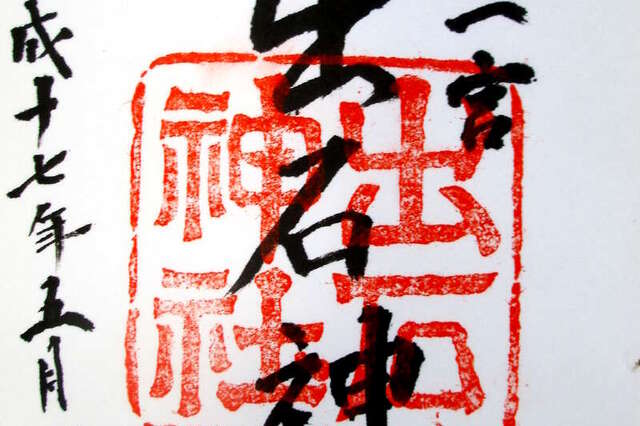 一宮
出石神
出石
神社
成十七年五月